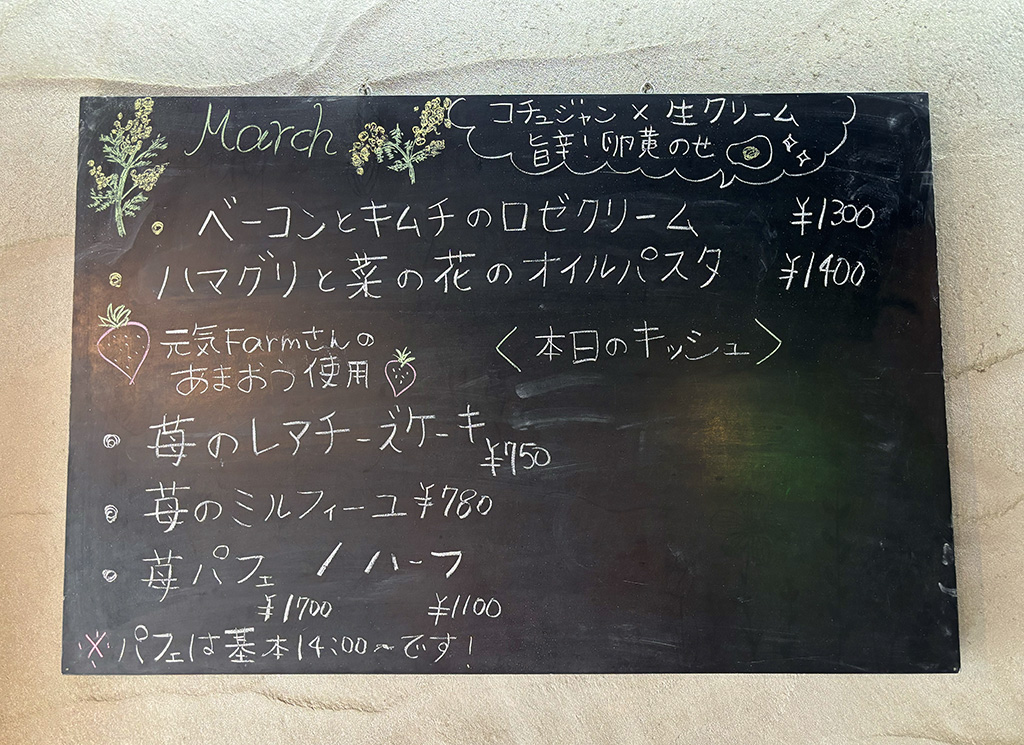 March
コチュジャン×生クリーム
旨辛!卵黄のせ
ベーコンとキムチのロゼクリーム ¥1300
ハマグリと菜の花のオイルパスタ ¥1400
元気Farmさんの
あまおう使用
〈本日のキッシュ〉
苺のレアチーズケーキ ¥750
苺のミルフィーユ ¥780
苺パフェ / ハーフ
¥1700 ¥1100
※パフェは基本14:00~です!